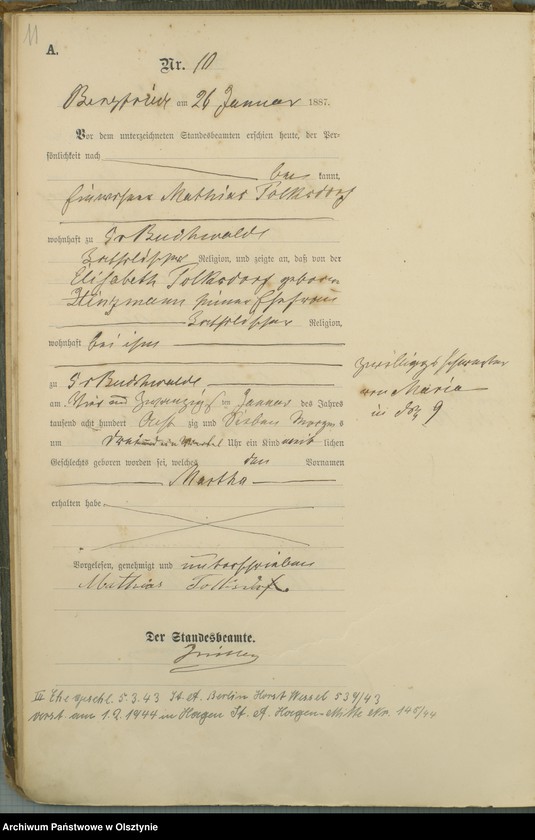 11
A.
Nr. 10
am 26 Januar 1887.
Vor dem unterzeichneten Standesbeamten erschien heute, der Per-
sönlichkeit nach
be kannt,
Einwohner Mathias Tolksdorf
wohnhaft zu Gr Buchwalde
katholischer Religion, und zeigte an, daß von der
Elisabeth Tolksdorf geboren
Hinzmann seiner Ehefrau
katholischer Religion,
wohnhaft bei ihm
zu Gr Buchwalde
am vier und zwanzigsten Januar des Jahres
tausend acht hundert acht zig und sieben Morgens
um drei Uhr ein Kind weib lichen
Geschlechts geboren worden sei, welches den Vornamen
Martha
erhalten habe
Vorgelesen, genehmigt und unterschrieben
Mathias Tolksdorf
Der Standesbeamte.
Zwillingsschwester
von Maria
in No 9
III Ehe geschl. 5.3.43 St. A. Berlin Horst Wessel 539/43
verst. am 1.2.1944 in Hagen St. A. Hagen-Mitte Nr. 145/44
Archiwum Państwowe w Olsztynie